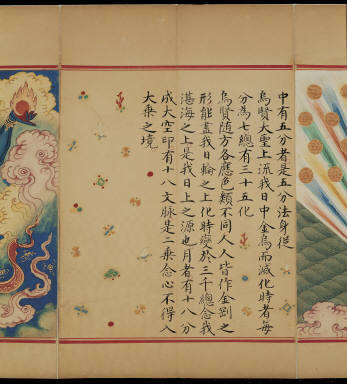 中有五分者是五分法身從
烏賢大聖上流我日中金烏而滅化時者每
分為七總有三十五化
烏賢隨方各應色類不同人人皆作金剛之
形能盡我日輪之上化時變於三千總念我
湛海之上是我日上之源也月者有十八分
成大空印有十八文脉是二乘念心不得入
大乘之境